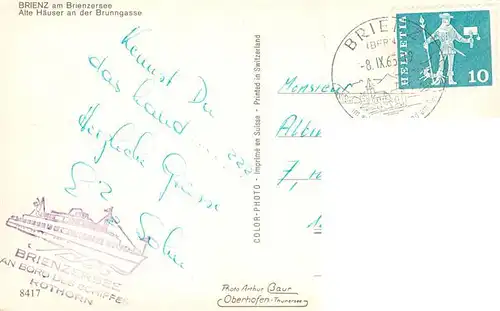 BRIENZ am Brienzersee
Alte Häuser an der Brunngasse
Kennst Du
das Land ... ???
Herzliche Grüsse
Sohn
BRIENZERSEE
AN BORD DES SCHIFFES
ROTHORN
8417
COLOR-PHOTO - Imprimé en Suisse - Printed in Switzerland
Photo Arthur Baur
Oberhofen-Thunersee
BRIENZ
(BERN)
-8.IX.65
HELVETIA
10
Monsieur
7,